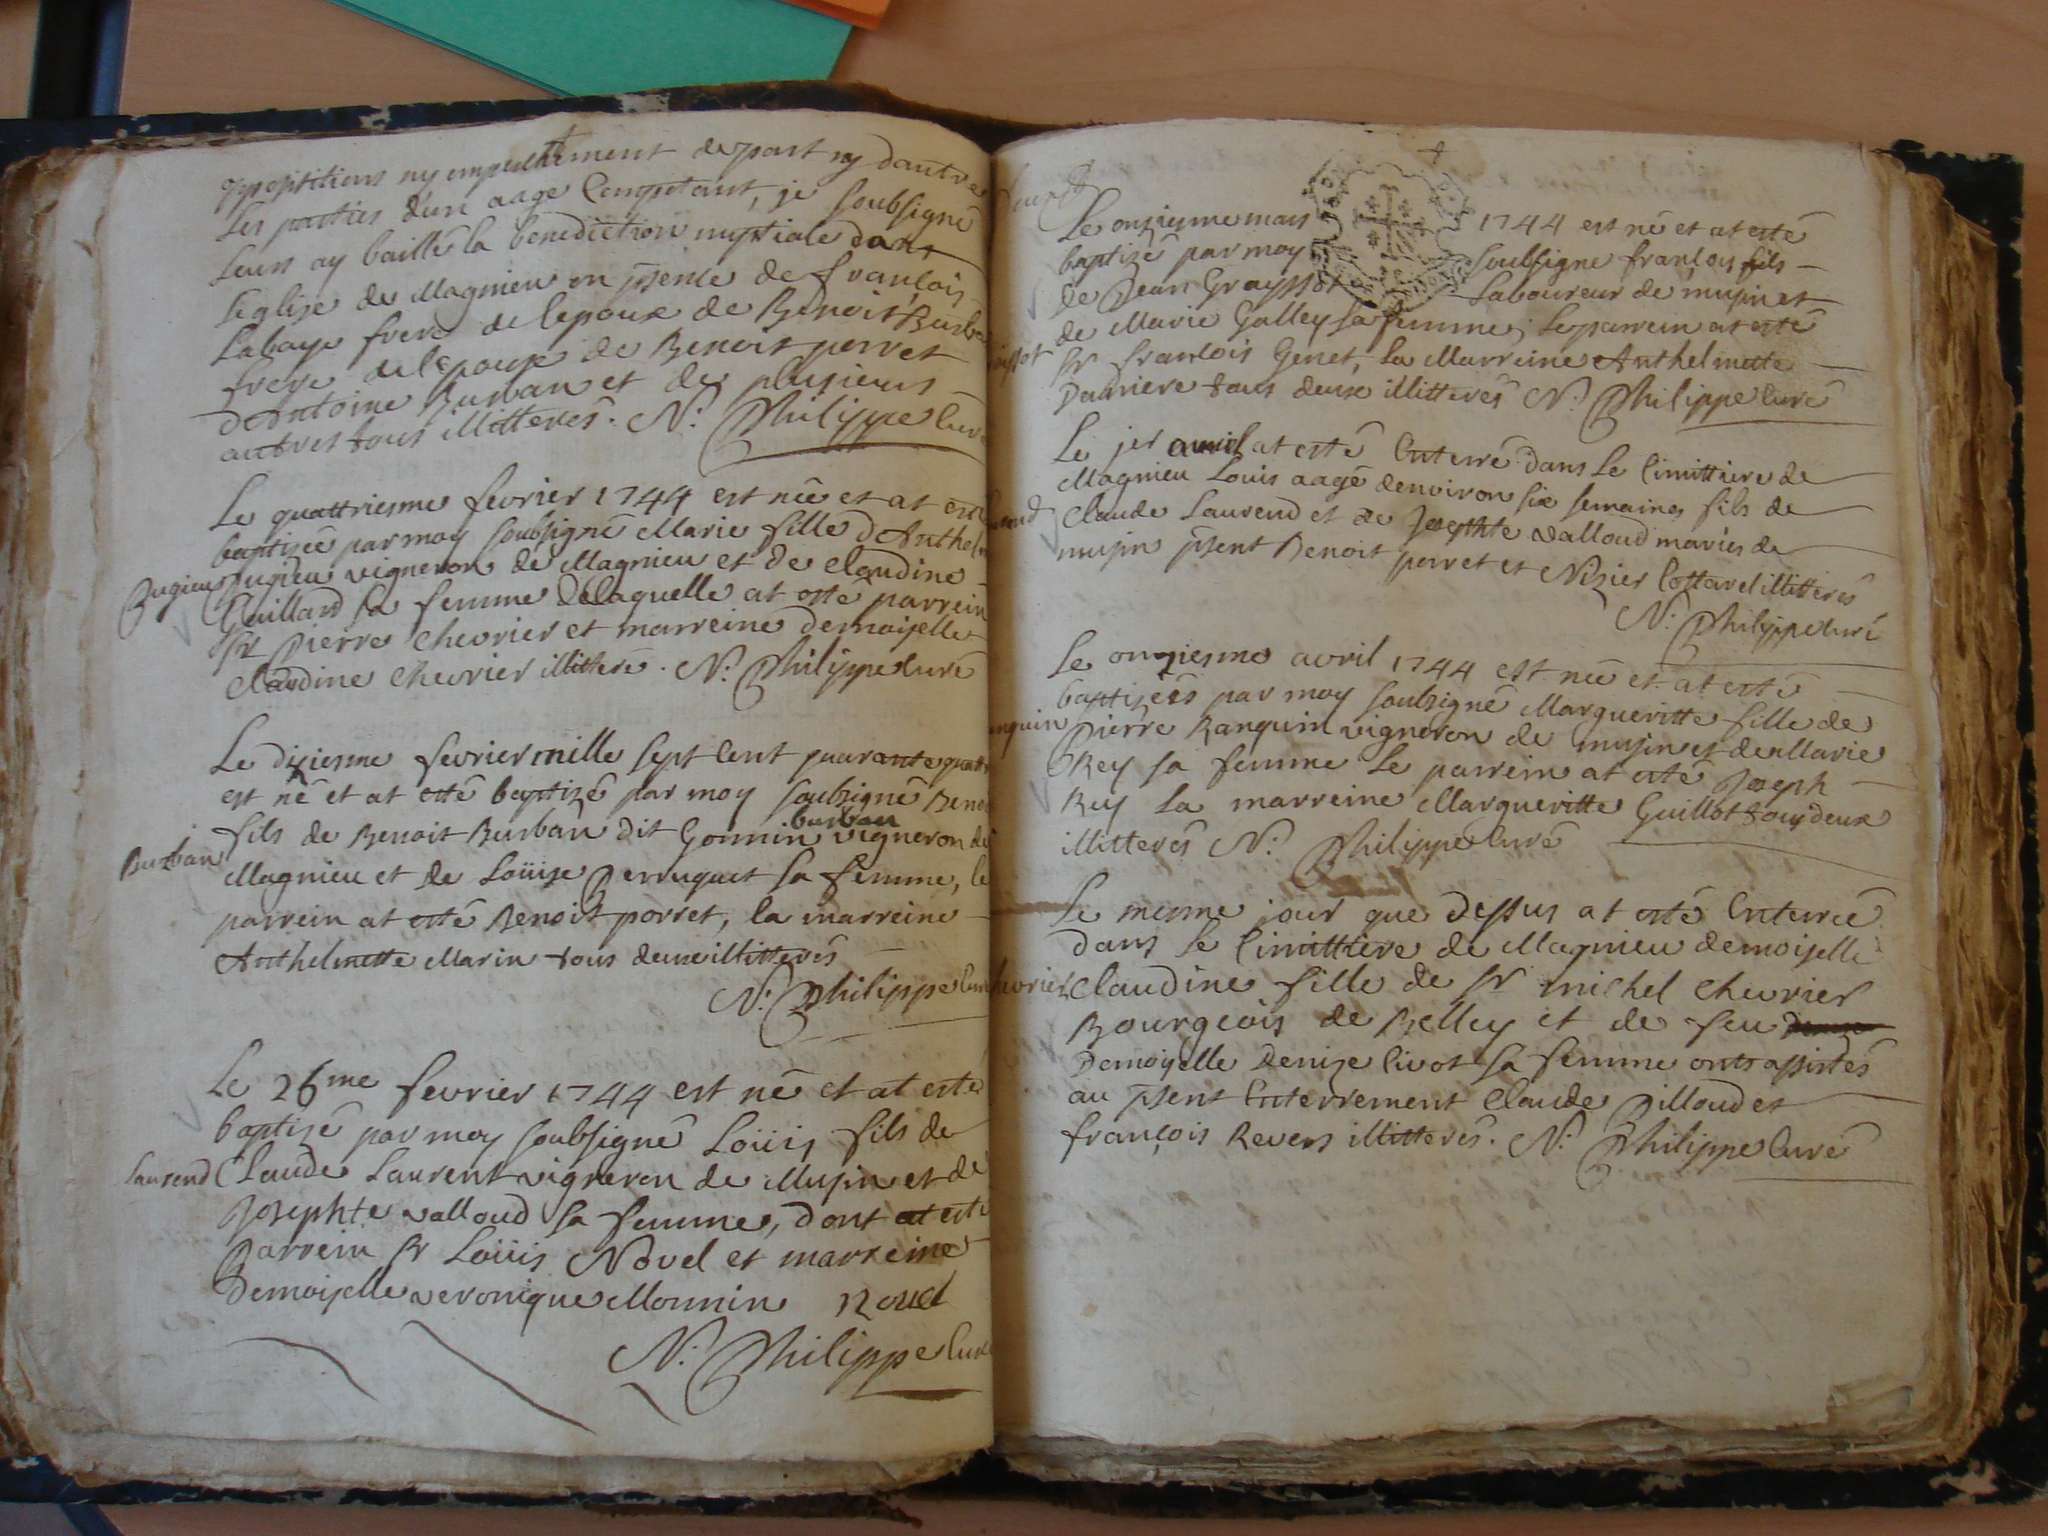 oppositions ny empechement de part ny dautre
les parties d'un aage Competant, je soubsigné
leurs ay baillé la benediction nuptiale dans
l'eglise de Magnieu en psence de françois
Labaye frere de lepoux de Benoit Burban
frere de lepouse de Benoit perret
d'Antoine Burban et de plusieurs
autres tous illitterés. N: Philippe Curé
Le quattriesme fevrier 1744 est née et at esté
baptisée par moy soubsigné Marie fille d'Anthelme
Bugieu
Bugieu vigneron de Magnieu et de Claudine
Guilland sa femme de laquelle at esté parrein
sr Pierre Chevrier et marreine demoiselle
Claudine Chevrier illitteré. N: Philippe Curé
Le dixiesme fevrier mille sept Cent quarante quattre
est né et at esté baptizé par moy soubsigné Benoit
burban
fils de Benoit Burban dit Gonnin vigneron de
Burban
Magnieu et de Loüise Perruquet sa femme, le
parrein at esté Benoit porret, la marreine
Anthelmette Marin tous deux illitterés
N: Philippe Curé
Le 26me fevrier 1744 est né et at esté
baptizé par moy soubsigné Loüis fils de
Laurend
Claude Laurent vigneron de Musin et de
Josephte valloud sa femme, dont at esté
Parrein sr Loüis Novel et marreine
Demoiselle veronique Monnin Novel
N: Philippe Curé
Le onziesme mars 1744 est né et at esté
baptizé par moy soubsigné françois fils
de Jean Grayssot Laboureur de musin et
de Marie Galley sa femme, Le parrein at esté
sr françois Genet, La Marreine Anthelmette
Darriere tous deux illitterés N: Philippe Curé
Le jer avril at esté Enterré dans Le Cimittiere de
Magnieu Louis aagé denviron six semaines fils de
Claude Laurend et de Josephte valloud mariés de
musin psent Benoit perret et Nizier Cottarel illitterés
N: Philippe Curé
Le onziesme avril 1744 est née et at esté
baptizées par moy soubsigné Margueritte fille de
Pierre Ranquin vigneron de musin et de Marie
Rey sa femme Le parrein at esté Joseph
Rey La marreine Margueritte Guillot tous deux
illitterés N: Philippe Curé
Le mesme jour que dessus at esté Enterrée
dans le Cimittiere de Magnieu demoiselle
Claudine fille de sr michel Chevrier
Bourgeois de Belley et de feu
Demoiselle Denise Civot sa femme onts assistés
au psent Enterrement Claude Pilloud et
françois Revers illitterés. N: Philippe Curé